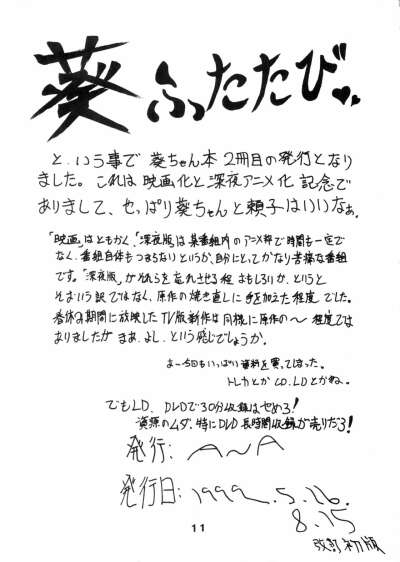 葵ふったたび
と、いう事で 葵ちゃん本 2冊目の発行となり
ました。これは 映画化と深夜アニメ化 記念で
ありまして、やっぱり葵ちゃんと頼子はいいなぁ。
「映画」はともかく、「深夜版」は某番組内のアニメ枠で時間も一定で
なく、番組自体もつまらないというか、自分にとってかなり苦痛な番組
です。「深夜版」がそれらを忘れさせる程 おもしろいか、というと
そおいう訳ではなく、原作の焼き直しに手を加えた程度でした。
春休み期間に放映したTV版新作は同様に原作の〜程度では
ありましたが まあ、よし、という感じでしょうか。
よー今回もいっぱい資料を買ってしまった。
トレカとか CD、LDとかね。
でもLD、DVDで30分収録はやめろ!
資源のムダ、特にDVD 長時間収録が売りだろ!
発行: A〜A
発行日: 1999.5.16.
8.15
改訂初版
11